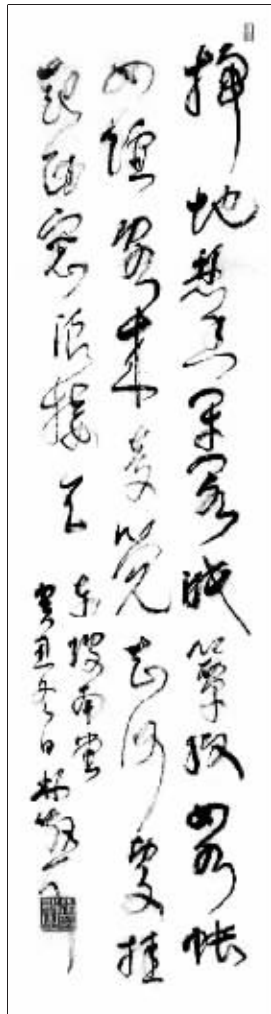 掃地焚香閉閣眠簟紋如水帳
如煙客來夢覺知何處挂
起西窗浪接天
東坡南堂
癸丑冬日林散耳